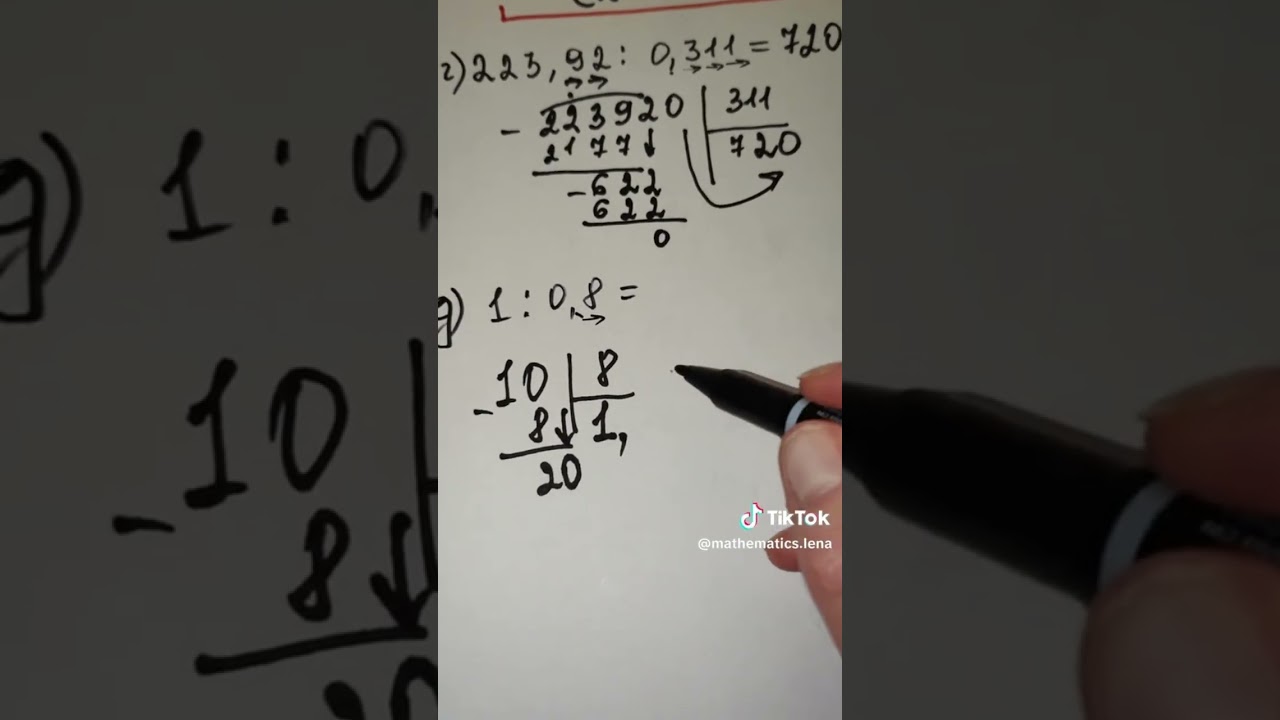 г) 223,92 : 0,311 = 720
223920 | 311
- 2177 | 720
- 622
622
0
д) 1 : 0,8 =
10 | 8
- 8 | 1,
20
TikTok
@mathematics.lena